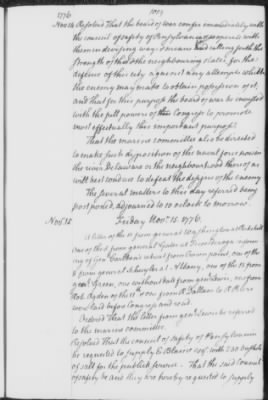 1776
1059
Nov 14 Resolved That the board of war confer immediately with
the council of safety of Pensylvania & concert with
them on devising ways & means for calling forth the
strength of that & the neighbouring states for the
defense of this city against any attempts which
the enemy may make to obtain possession of it;
and that for this purpose the board of war be invested
with the full powers of this Congress to promote
most effectually this important purpose.
That the marine committee also be directed
to make such disposition of the naval force upon
the river Delaware in the neighbourhood thereof as
will best conduce to defeat the designs of the enemy
The several matters to this day referred being
postponed, adjourned to 10 oClock to morrow.
Nov 15 Friday Nov. 15. 1776.
A letter of the 11 from general Washington at Peekskill
one of the 5 from general Gates at Ticonderoga inform
ing of Gen Carlton's retreat from Crown point, one of the
from general Schuyler at Albany, one of the 12 from
genl Green, one without date from genl Lewis, one from
Robt Ogden of the 11 one from R
were laid before Congress and read.
Ordered That the letter from genl Lewis be referred
to the marine committee.
Resolved That the council of safety of Pensylvania
be requested to supply B Blaine Esqr. with 200 bushels
of salt for the publick service. That the said Council
of safety be and they are hereby requested to supply